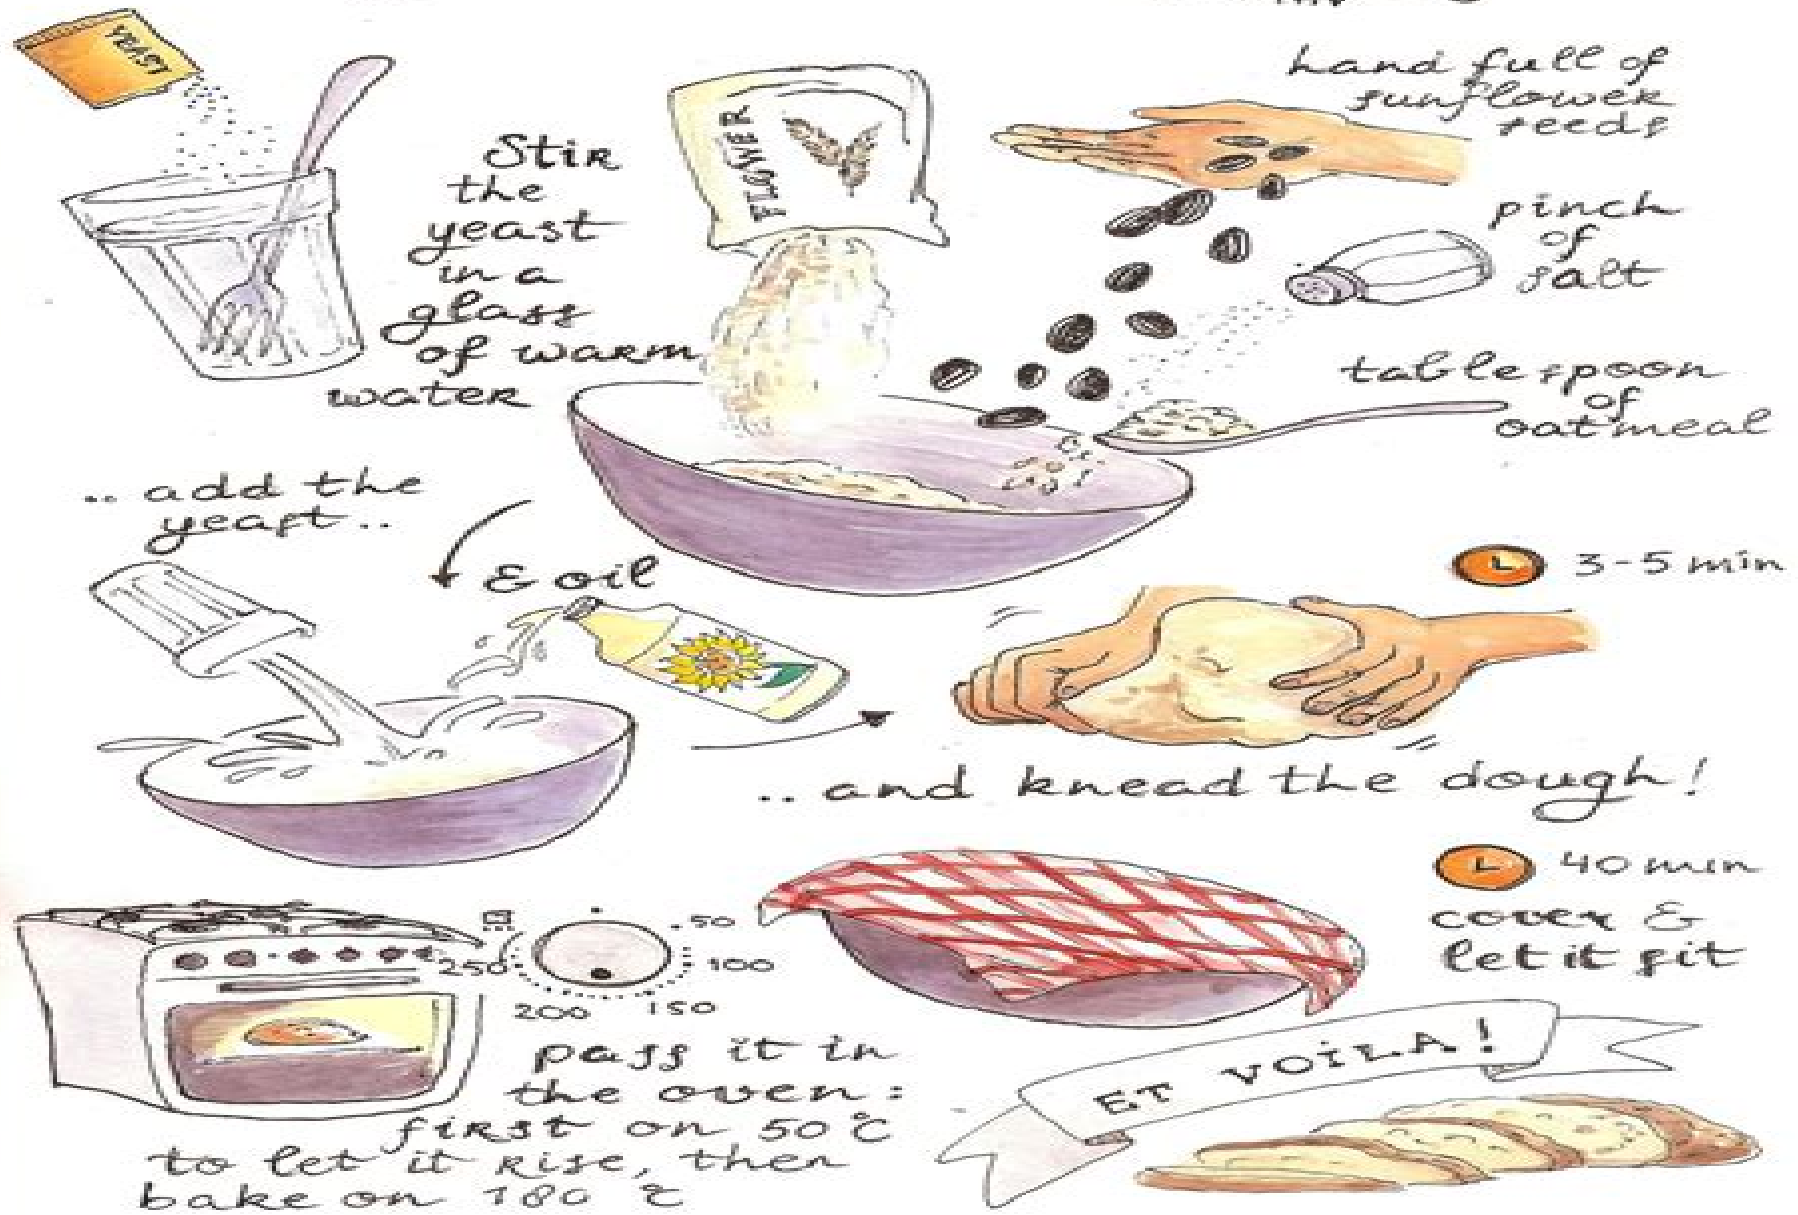 YEAST
Stir
the
yeast
in a
glass
of warm
water
FLOWER
hand full of
sunflower
seeds
pinch
of
salt
tablespoon
of
oatmeal
.. add the
yeast..
& oil
3-5 min
..and knead the dough!
40 min
cover &
let it sit
50
100
150
200
250
pass it in
the oven:
first on 50°C
to let it rise, then
bake on 180 °C
ET VOILA!